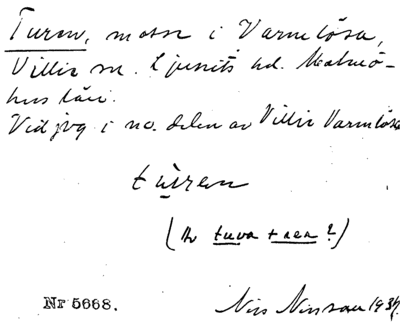 Turen, mosse i Varmlösa,
Villie sn. Ljunits hd. Malmö-
hus län.
Vid jvg i nö. delen av Villie Varmlösa
tu̇ren
( tuva + ren ?)
Nr 5668.
Nils Nilsson 1934.